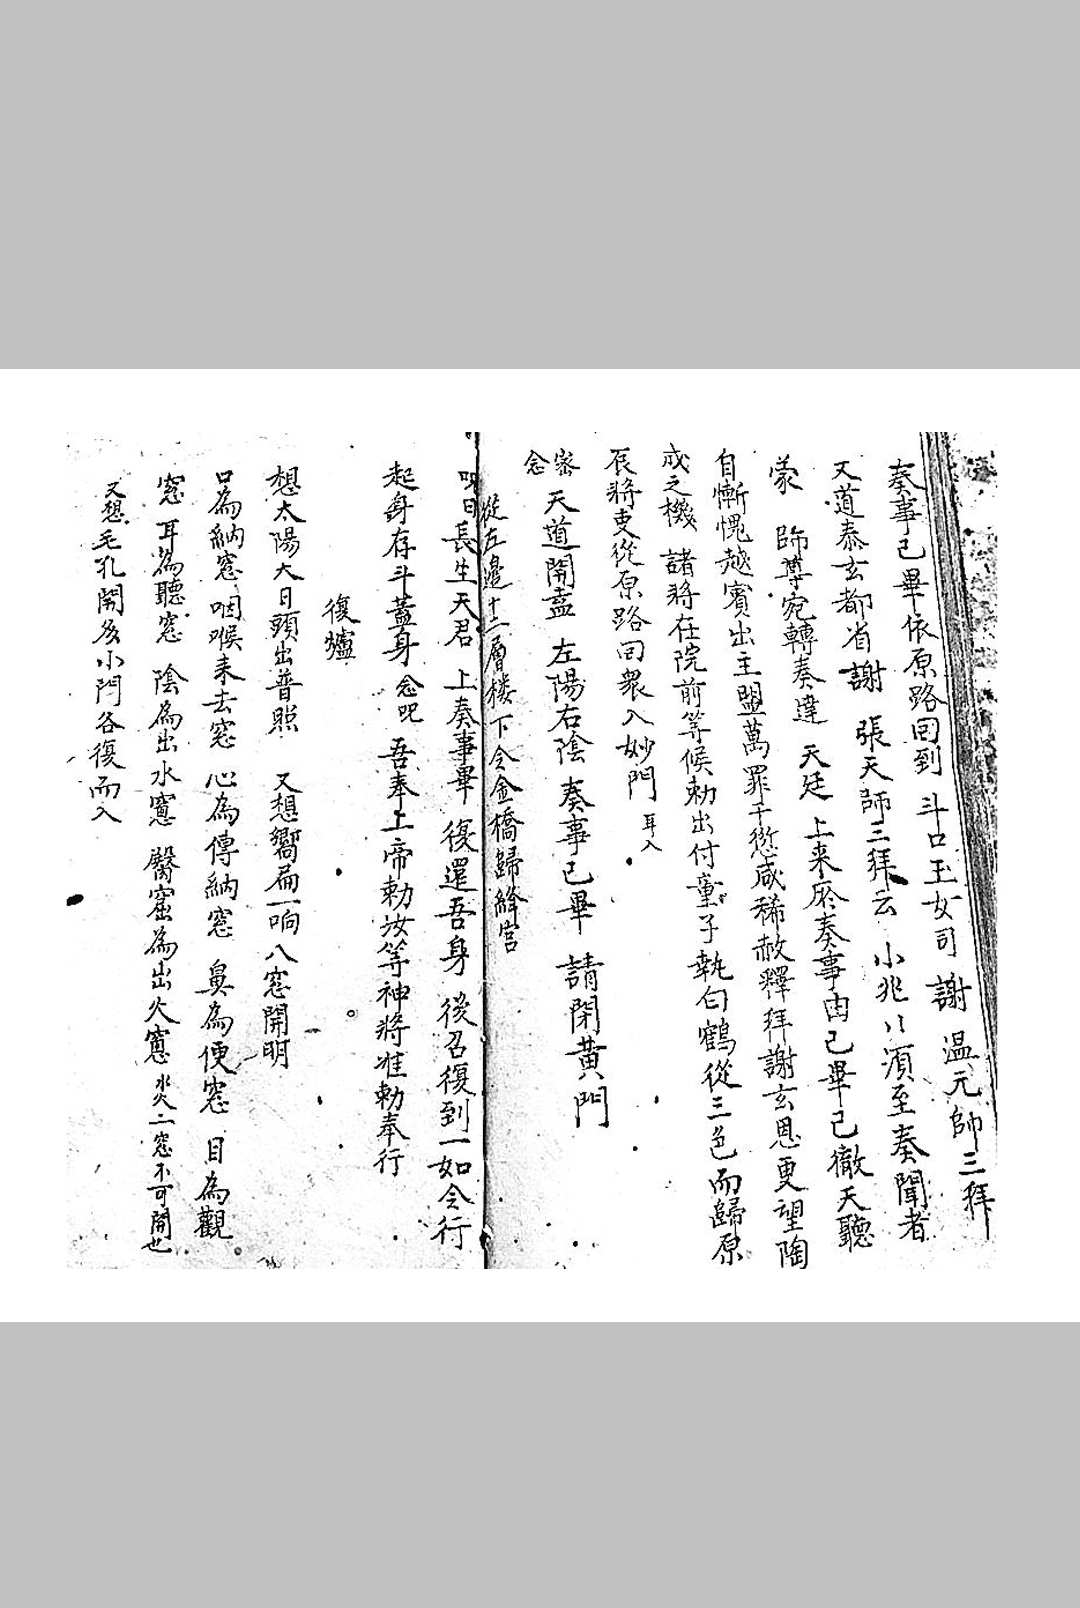 奏事已畢依原路回到 斗口玉女司 謝 温元帥三拜
又道泰玄都省 謝 張天師三拜云 小兆八湏至奏聞者
蒙 師尊宛轉奏達 天廷 上来所奏事由已畢已徹天聽
自慚愧越賓出主盟萬罪千愆咸稀赦釋拜謝玄恩更望陶
成之機 諸將在院前等候勅出付童子執白鶴從三色而歸原
辰將吏從原路回衆入妙門 耳入
密念 天道開盍 左陽右陰 奏事已畢 請閉黄門
從左邊十二層楼下令金橋歸絳宫
呪曰長生天君 上奏事畢 復還吾身 後召復到一如令行
起身存斗蓋身 念呪 吾奉上帝勅汝等神將准勅奉行
復爐
想太陽大日頭出普照 又想嚮扁一响八窓開明
口為納窓 咽喉来去窓 心為傳納窓 鼻為便窓 目為觀
窓 耳為聽窓 陰為出水窻 臀窟為出火窻 水火二窓不可開也
又想毛孔開多小門各復而入